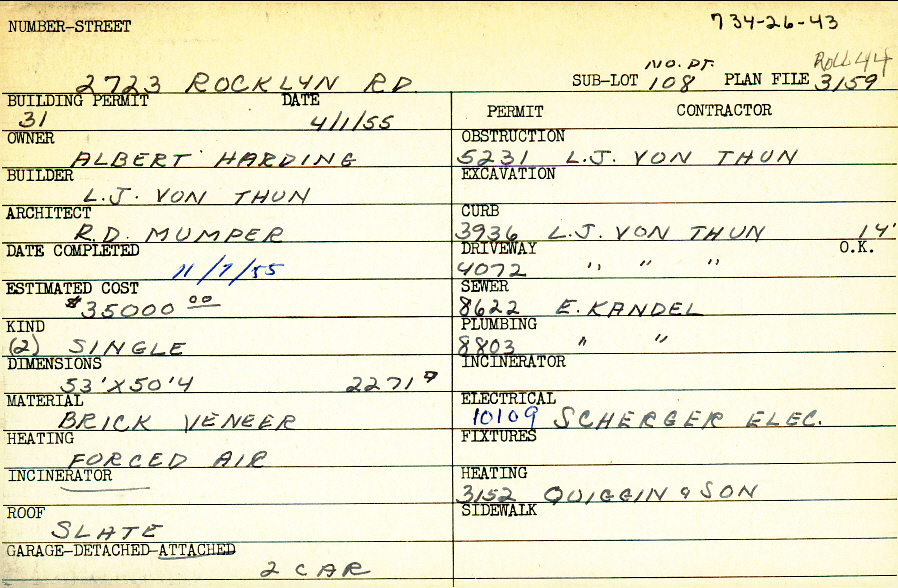 NUMBER-STREET 734-26-43
2723 ROCKLYN RD SUB-LOT NO. PT. 108 PLAN FILE ROLL 44 3159
BUILDING PERMIT DATE PERMIT CONTRACTOR
31 4/1/55
OWNER OBSTRUCTION
ALBERT HARDING 5231 L.J. VON THUN
BUILDER EXCAVATION
L.J. VON THUN
ARCHITECT CURB
R.D. MUMPER 3936 L.J. VON THUN 14'
DATE COMPLETED DRIVEWAY O.K.
11/7/55 4072 " " "
ESTIMATED COST SEWER
$35000 00 8622 E. KANDEL
KIND PLUMBING
(2) SINGLE 8803 " "
DIMENSIONS INCINERATOR
53'X50'4 2271
MATERIAL ELECTRICAL
BRICK VENEER 10109 SCHERGER ELEC.
HEATING FIXTURES
FORCED AIR
INCINERATOR HEATING
3152 QUIGGIN & SON
ROOF SIDEWALK
SLATE
GARAGE-DETACHED-ATTACHED
2 CAR